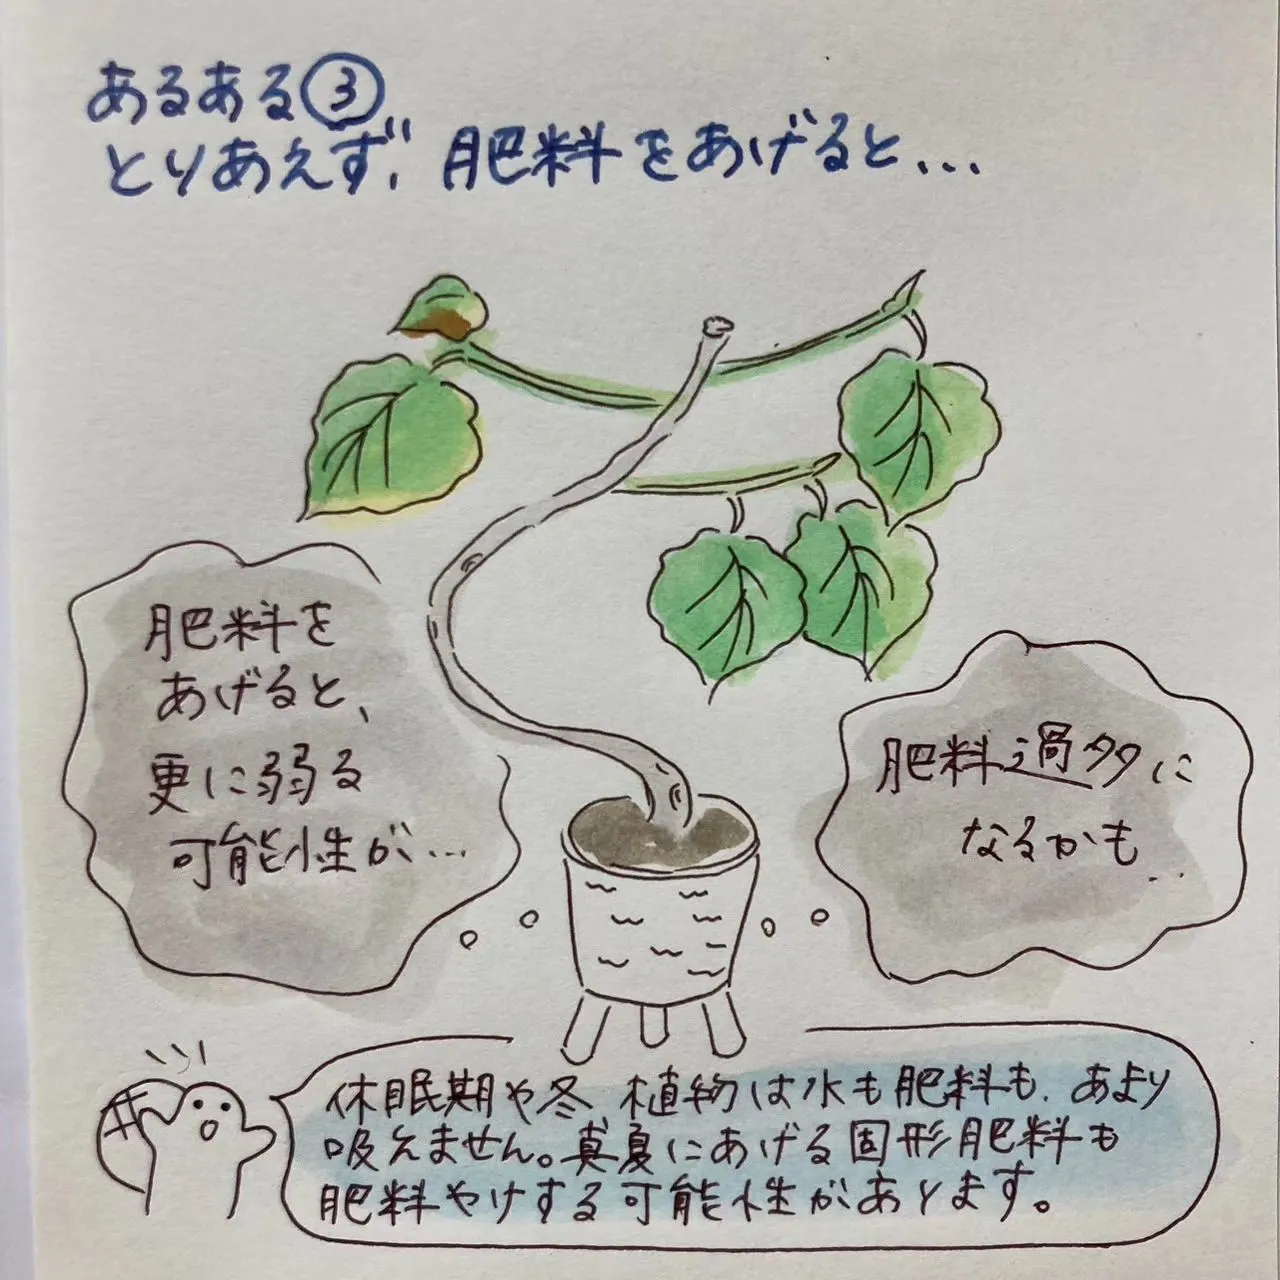 あるある③
とりあえず、肥料をあげると...
肥料を
あげると、
更に弱る
可能性が...
肥料過多に
なるかも...
休眠期や冬、植物は水も肥料も、あまり
吸えません。真夏にあげる固形肥料も
肥料やけする可能性があります。